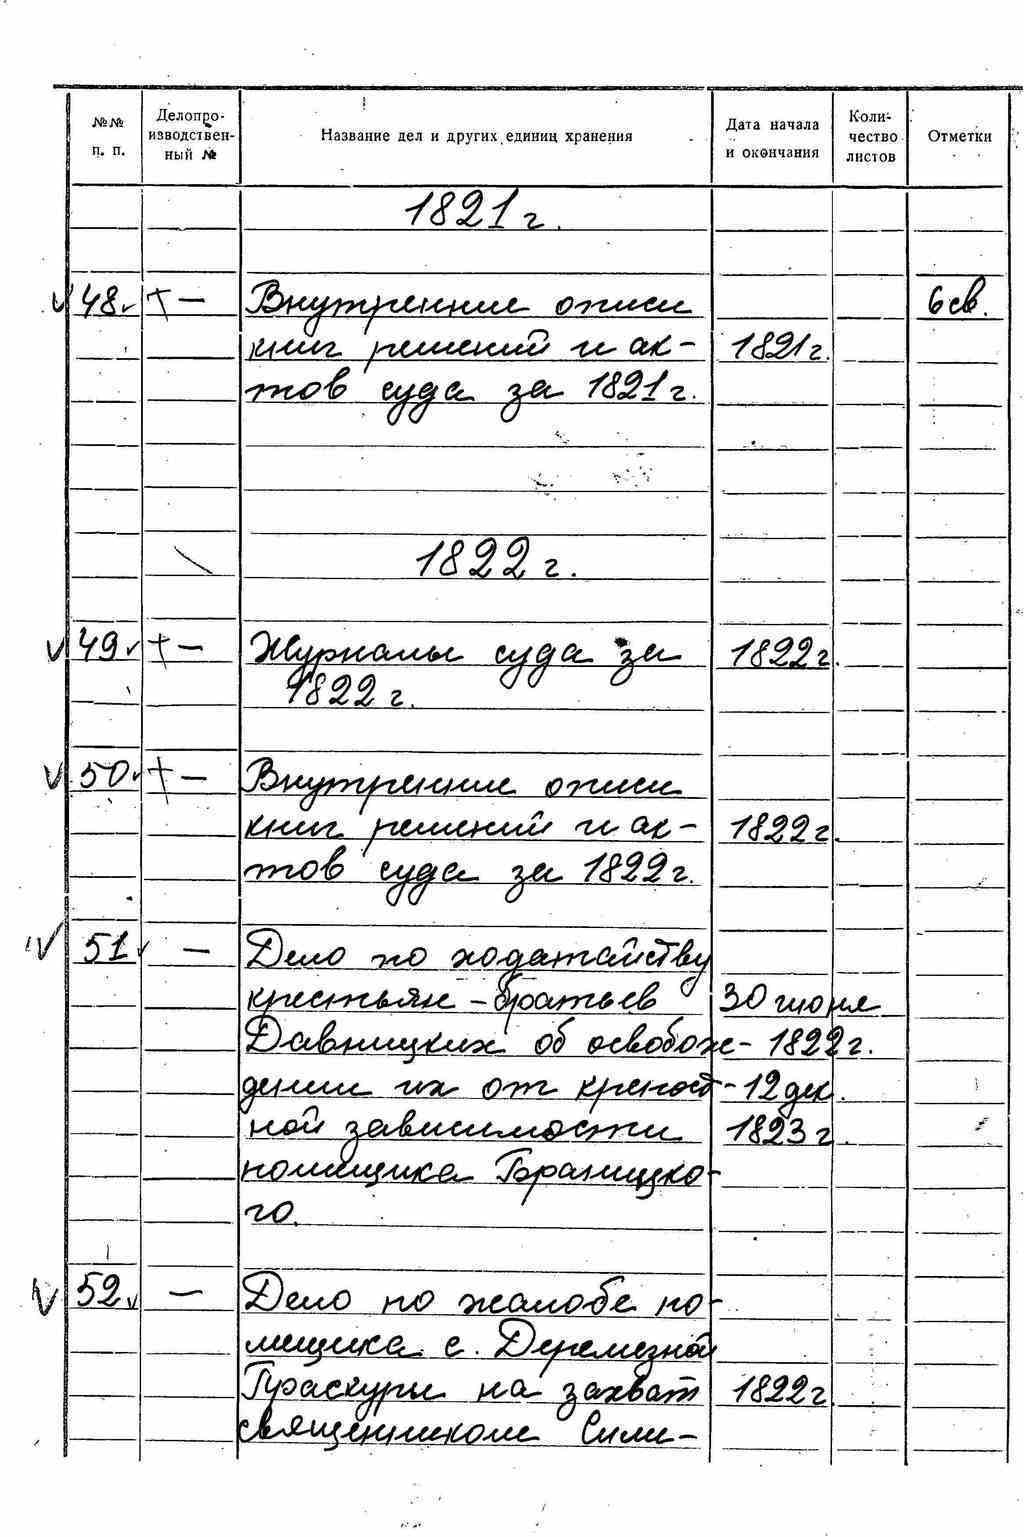 №№ п. п. Делопро-изводствен-ный № Название дел и других единиц хранения Дата начала и окончания Коли-чество листов Отметки
1821 г.
48 + — Внутренние описи 6 св.
книг решений и ак- 1821 г.
тов суда за 1821 г.
1822 г.
49 + — Журналы суда за 1822 г.
1822 г.
50 + — Внутренние описи
книг решений и ак- 1822 г.
тов суда за 1822 г.
51 — Дело по ходатайству
крестьян - братьев 30 июня
Давницких об освобож- 1822 г.
дении их от крепост- 12 дек.
ной зависимости 1823 г.
помещика Браницко-
го.
52 — Дело по жалобе по-
мещика с. Деремезной
Праскуры на захват 1822 г.
священником Сили-